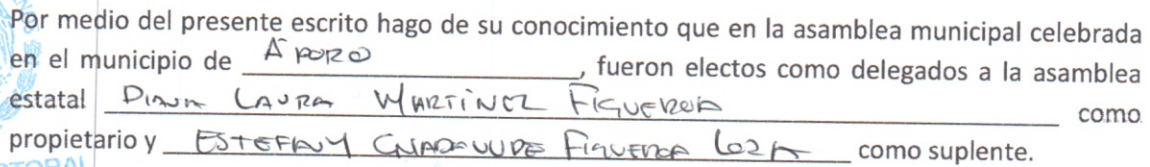 Por medio del presente escrito hago de su conocimiento que en la asamblea municipal celebrada
en el municipio de APORO, fueron electos como delegados a la asamblea
estatal DIANA LAURA MARTINEZ FIGUEROA como
propietario y ESTEFANY GUADALUPE FIGUEROA LOZA como suplente.